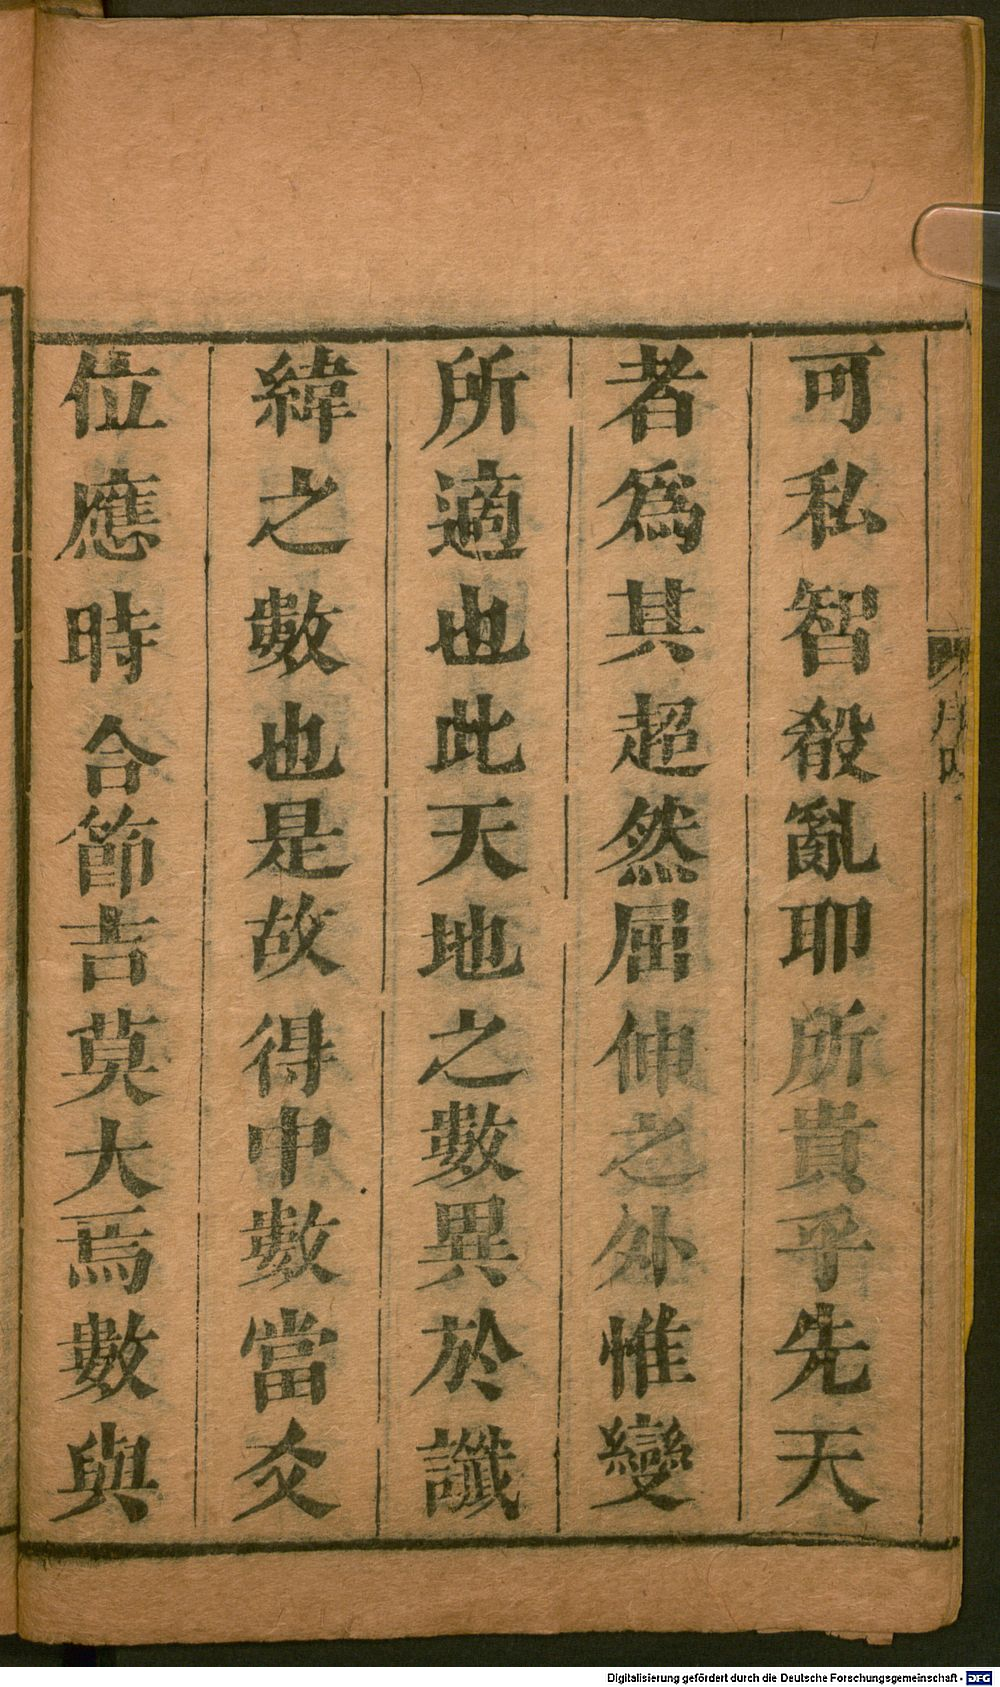 可私智殽亂耶所貴乎先天
者爲其超然屈伸之外惟變
所適也此天地之數異於讖
緯之數也是故得中數當爻
位應時合節吉莫大焉數與
序四
Digitalisierung gefördert durch die Deutsche Forschungsgemeinschaft - DFG